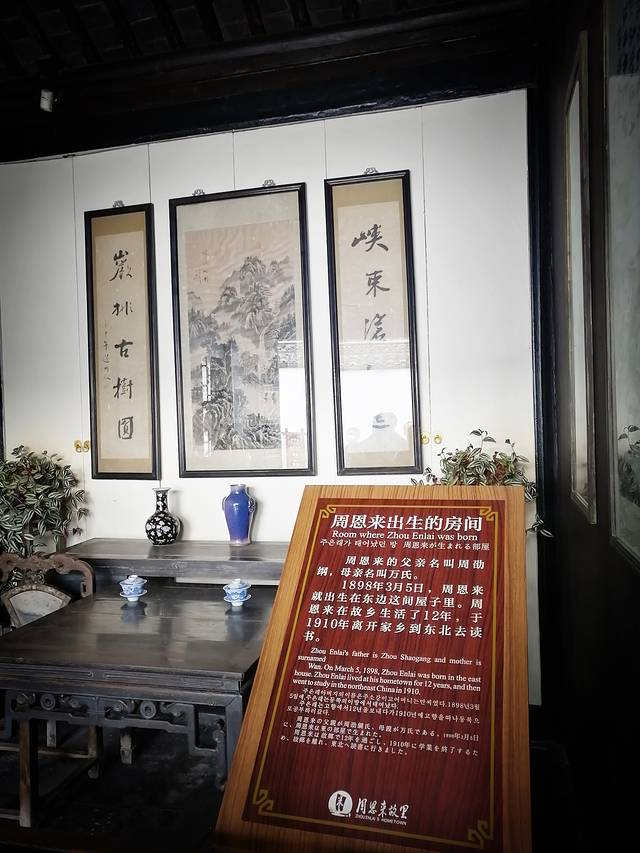 峡束滄
巖排古樹圓
周恩来出生的房间
Room where Zhou Enlai was born
주은래가 태어났던 방 周恩来が生まれる部屋
周恩来的父亲名叫周劭
纲，母亲名叫万氏。
1898年3月5日，周恩来
就出生在东边这间屋子里。周
恩来在故乡生活了12年，于
1910年离开家乡到东北去读
书。
Zhou Enlai's father is Zhou Shaogang and mother is
surnamed
Wan. On March 5, 1898, Zhou Enlai was born in the east
house. Zhou Enlai lived at his hometown for 12 years, and then
went to study in the northeast China in 1910.
周恩来の父親が周劭綱氏、母親が万氏である。1898年3月5日
に、周恩来は東の部屋で生まれた。
周恩来は故郷で12年を過ごし、1910年に学業を終了するた
め、故郷を離れ、東北へ読書に行きました。
周恩来故里
ZHOUENLAI'S HOMETOWN